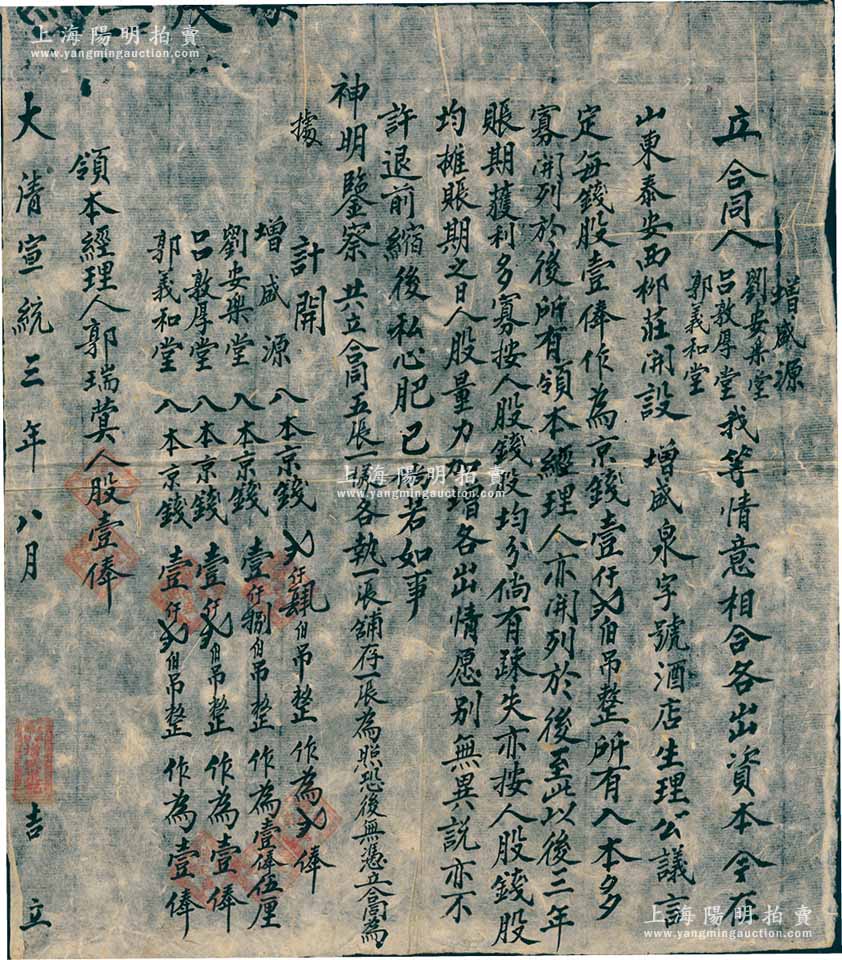 立合同人
增盛源
劉安樂堂
呂敦厚堂
郭義和堂
我等情意相合各出資本今在
山東泰安西柳莊開設 增盛泉字號酒店生理公議言
定每錢股壹俸作為京錢壹仟弍佰吊整所有入本多
寡開列於後所有領本經理人亦開列於後至此以後三年
賬期獲利多寡按人股錢股均分倘有疎失亦按人股錢股
均攤賬期之日人股量力加增各出情愿別無異說亦不
許退前縮後私心肥己 若如事
神明鑒察 共立合同五張一樣各執一張鋪存一張為照恐後無憑立合同為
據
計開
增盛源 入本京錢弍仟肆佰吊整 作為弍俸
劉安樂堂 入本京錢壹仟捌佰吊整 作為壹俸伍厘
呂敦厚堂 入本京錢壹仟弍佰吊整 作為壹俸
郭義和堂 入本京錢壹仟弍佰吊整 作為壹俸
領本經理人郭瑞蓂人股壹俸
大清宣統三年八月 吉立
上海陽明拍賣
www.yangmingauction.com
上海陽明拍賣
www.yangmingauction.com
上海陽明拍賣
www.yangmingauction.com
上海陽明拍賣
www.yangmingauction.com
上海陽明拍賣
www.yangmingauction.com